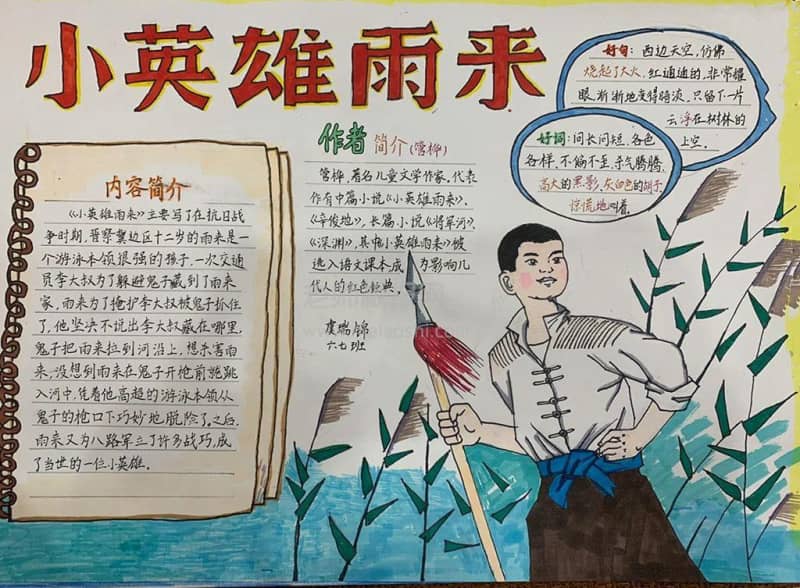 小英雄雨来
内容简介
《小英雄雨来》主要写了在抗日战
争时期,晋察冀边区十二岁的雨来是一
个游泳本领很强的孩子,一次交通
员李大叔为了躲避鬼子藏到了雨来
家,雨来为了掩护李大叔被鬼子抓住
了,他坚决不说出李大叔藏在哪里,
鬼子把雨来拉到河沿上,想杀害雨
来,没想到雨来在鬼子开枪前就跳
入河中,凭着他高超的游泳本领从
鬼子的枪口下巧妙地脱险了。之后,
雨来又为八路军立了许多战巧,成
了当世的一位小英雄。
作者简介(管桦)
管桦,著名儿童文学作家,代表
作有中篇小说《小英雄雨来》、
《辛俊地》,长篇小说《将军河》、
《深渊》,其中《小英雄雨来》被
选入语文课本,成为影响几
代人的红色经典。
虞瑞锦
六七班
好句:西边天空,仿佛
烧起了大火,红通通的,非常耀
眼,渐渐地变得暗淡,只留下一片
云浮在树林的
上空。
好词:问长问短、各色
各样、不偏不歪、杀气腾腾、
高大的黑影、灰白色的胡子
惊慌地叫着。